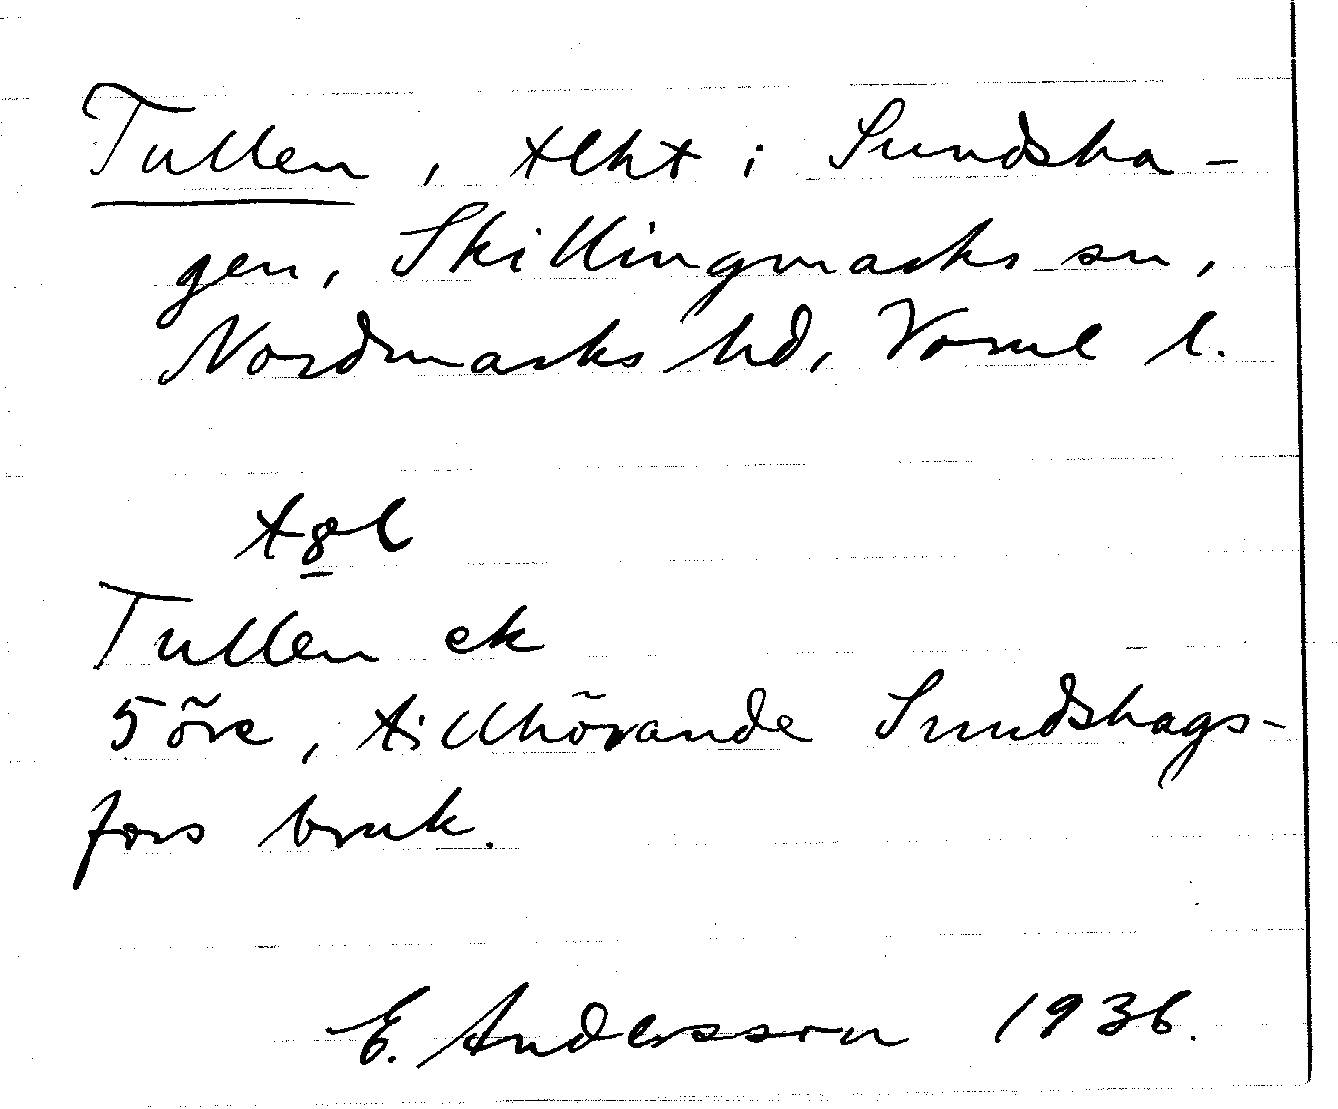 Tullen, tlht i Sundsha-
gen, Skillingmarks sn,
Nordmarks hd, Värml l.
Tullen ek
5 öre, tillhörande Sundshags-
fors bruk.
E. Andersson 1936.